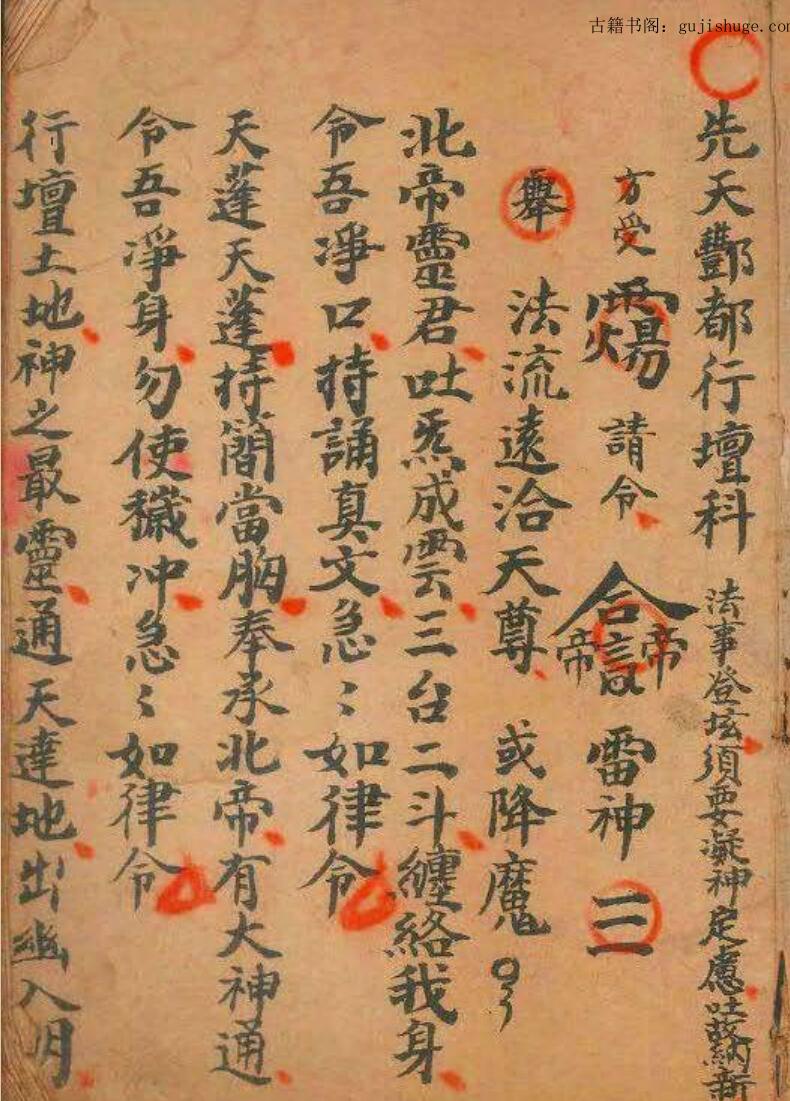 古籍书阁：gujishuge.com
先天酆都行壇科 法事登坛須要凝神定慮吐故納新
方受 請令 雷神
舉 法流遠洽天尊 或降魔
北帝靈君吐炁成雲三台二斗纏絡我身
令吾淨口持誦真文急〻如律令
天蓬天蓬持簡當胸奉承北帝有大神通
令吾淨身勿使穢冲急〻如律令
行壇土地神之最靈通天達地出幽入冥